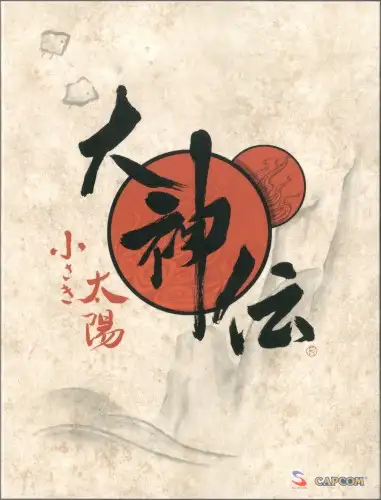 大神伝
小さき
太陽
CAPCOM